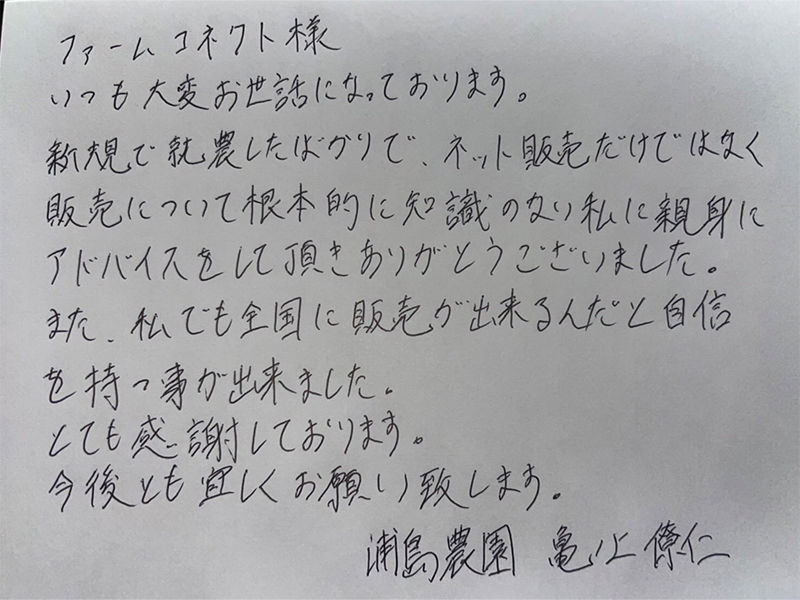 ファームコネクト様
いつも大変お世話になっております。
新規で就農したばかりで、ネット販売だけではなく
販売について根本的に知識のない私に親身に
アドバイスをして頂きありがとうございました。
また、私でも全国に販売が出来るんだと自信
を持つ事が出来ました。
とても感謝しております。
今後とも宜しくお願い致します。
浦島農園 亀ノ上 僚仁